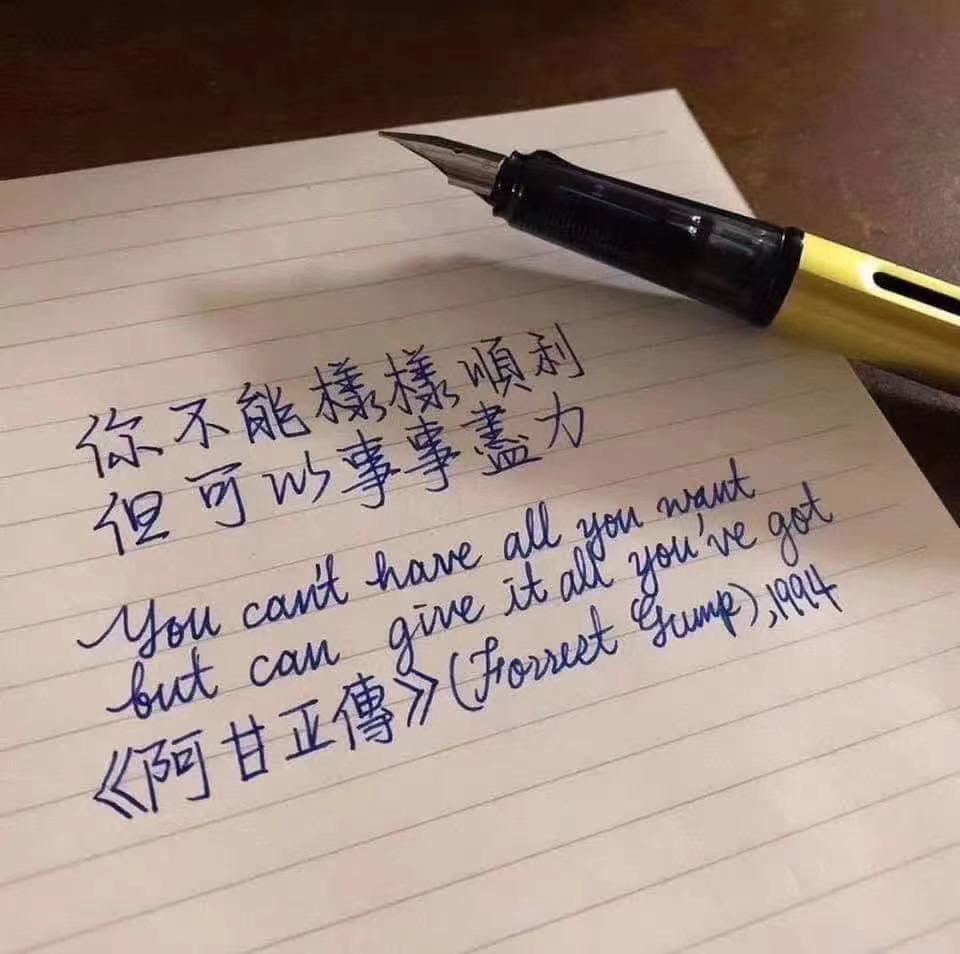 你不能樣樣順利
但可以事事盡力
You can't have all you want
but can give it all you've got
《阿甘正傳》(Forrest Gump),1994